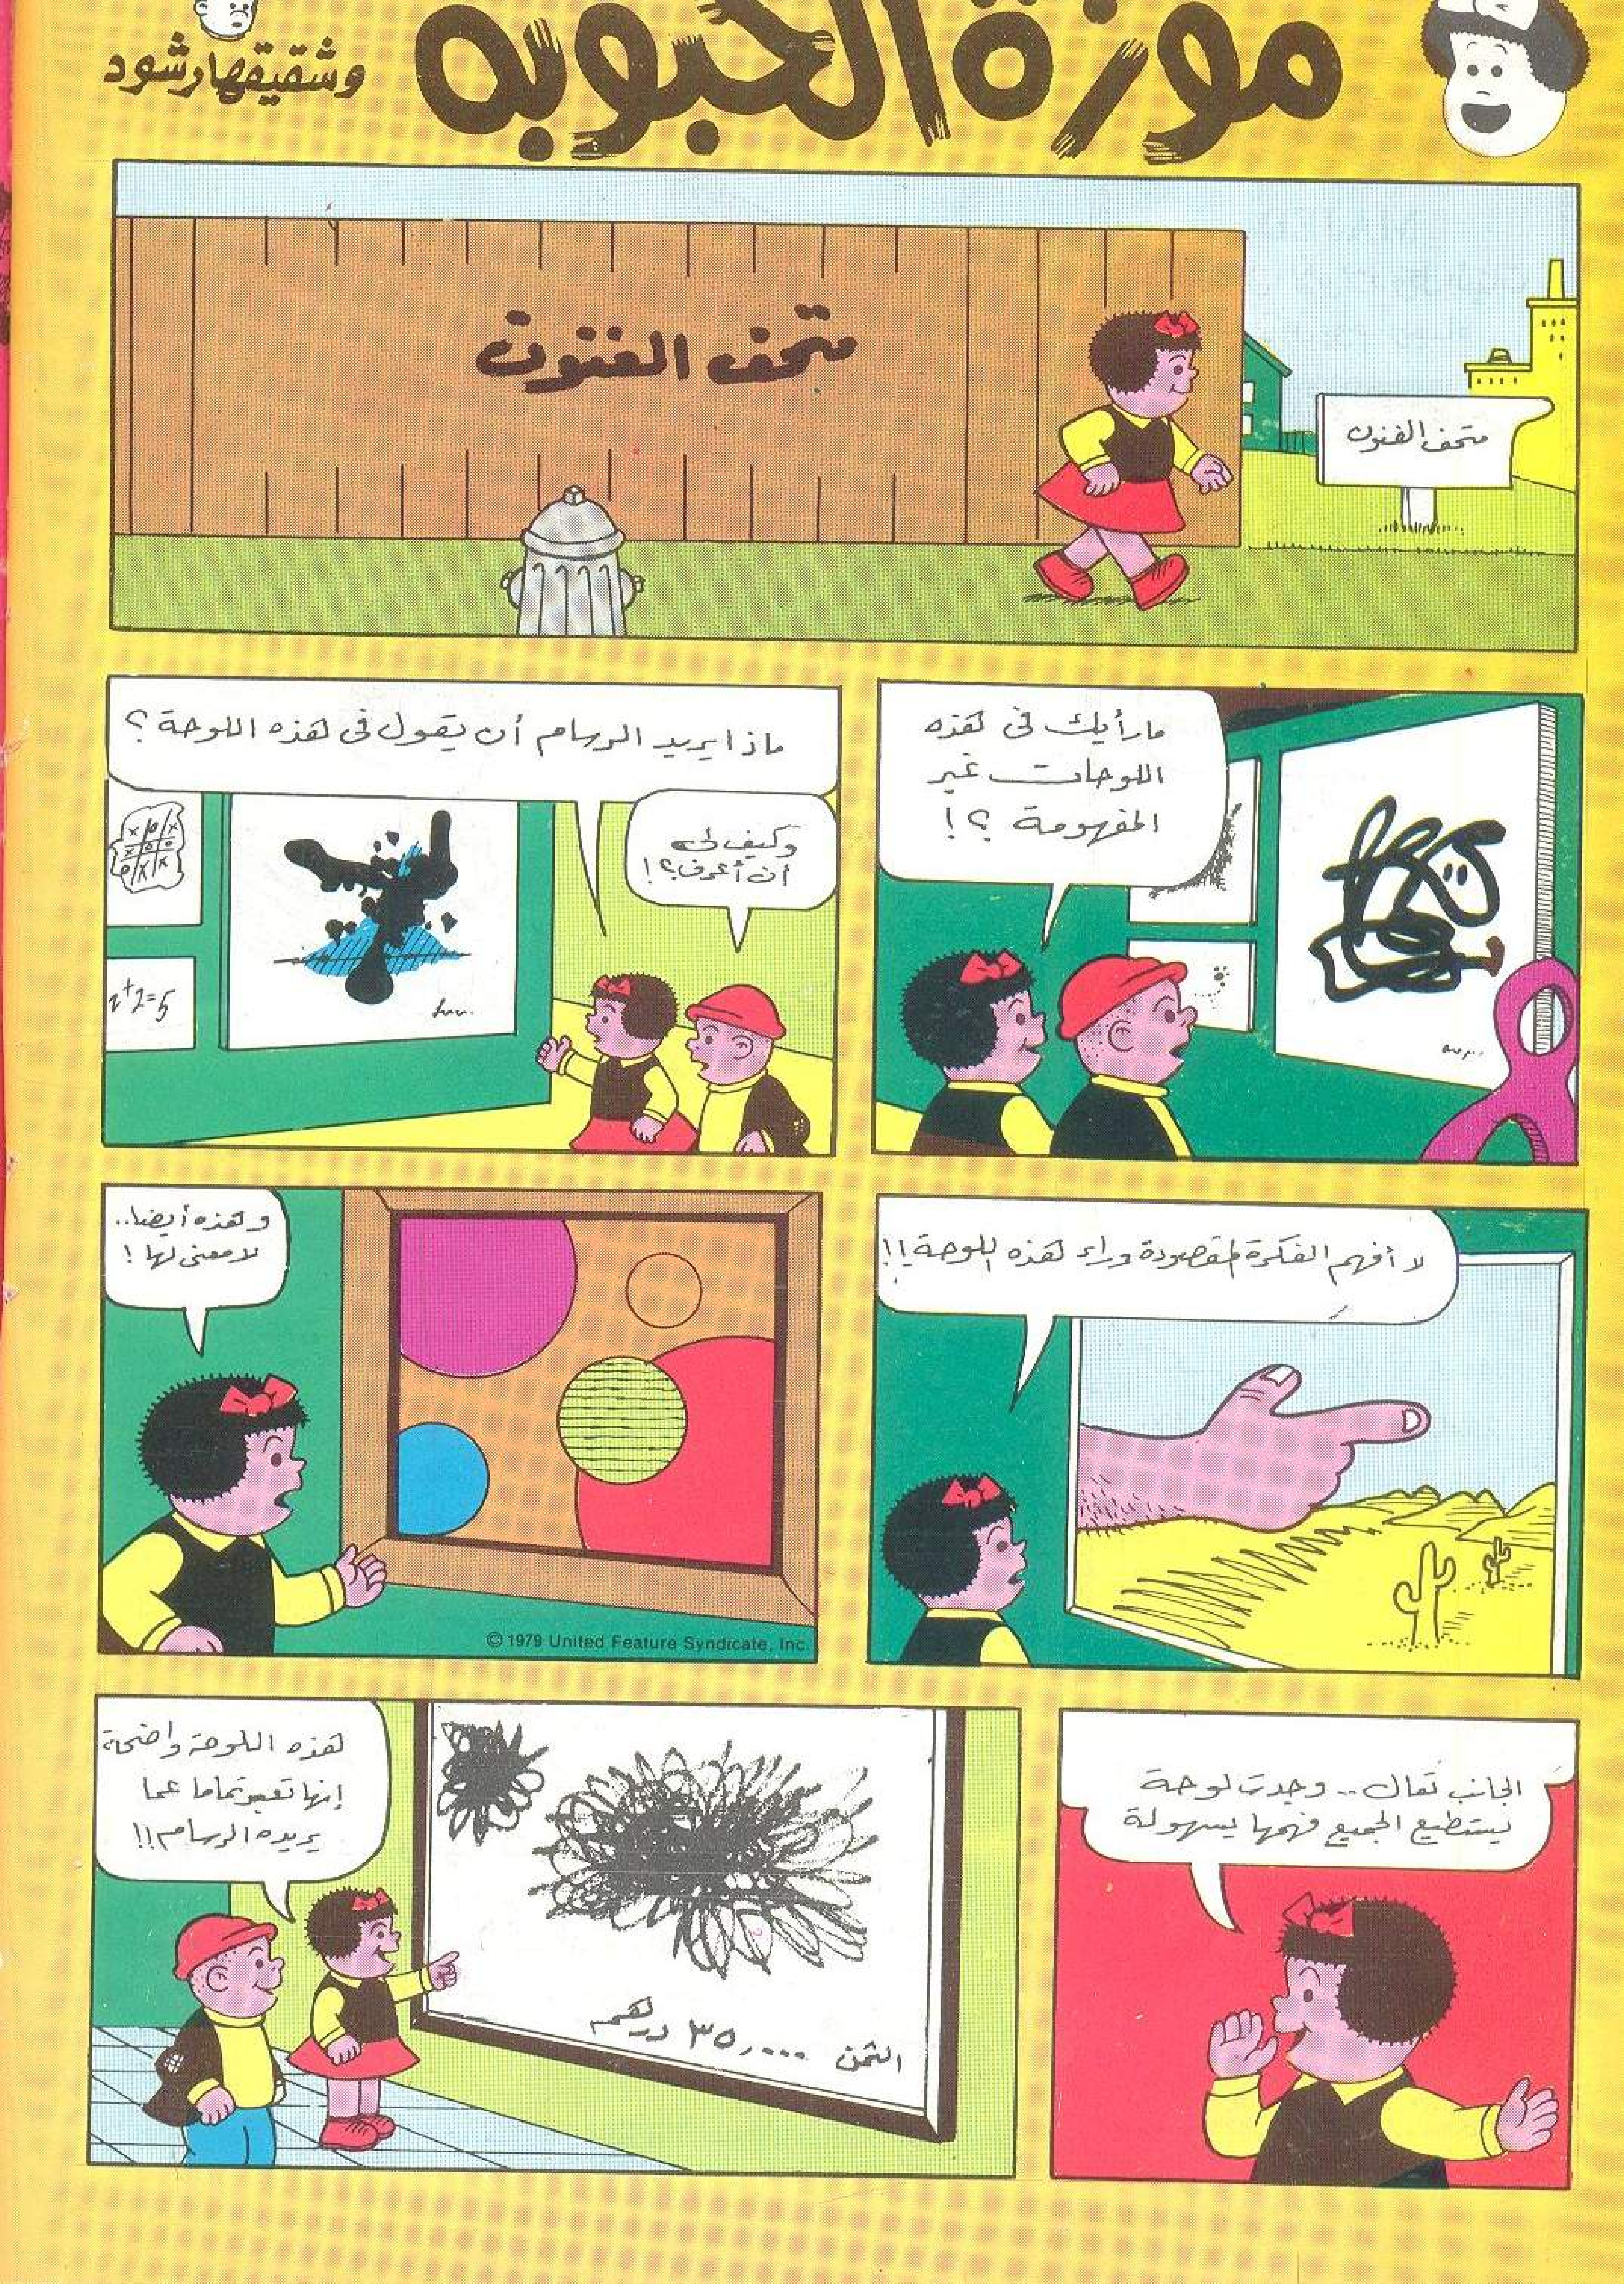 موزة الحبوبه
وشقيقها رشود
متحف الفنون
متحف الفنون
ما رأيك في هذه
اللوحات غير
المفهومة ؟!
ماذا يريد الرسام أن يقول في هذه اللوحة ؟
وكيف لي
أن أعرف؟!
2+2=5
لا أفهم الفكرة المقصودة وراء هذه اللوحة !!
وهذه أيضا..
لا معنى لها !
© 1979 United Feature Syndicate, Inc.
تعال .. وجدت لوحة
يستطيع الجميع فهمها بسهولة
هذه اللوحة واضحة
إنها تعبر تماما عما
يريده الرسام !!
الثمن ٣٥,٠٠٠ درهم